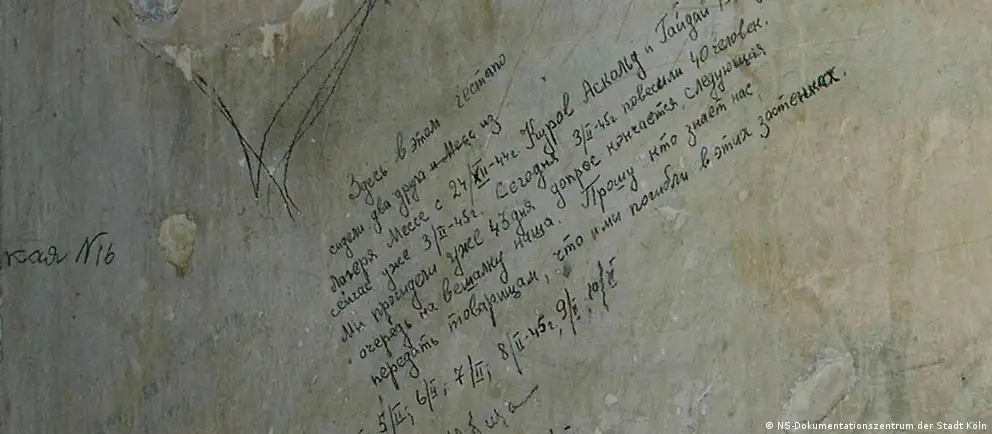 Здесь в этом гестапо
сидели два друга и Месс из
лагеря Мессе с 24/XII-44г. Куров Аскольд и Гайдай
сейчас уже 3/II-45г. Сегодня 3/II-45г повесили 40 человек.
Мы просидели уже 43 дня допрос кончается, следующая
очередь на вешалку наша. Прошу кто знает нас,
передать товарищам, что и мы погибли в этих застенках.
5/II; 6/II; 7/II; 8/II-45г, 9/II, 10/II
кая N16
© NS-Dokumentationszentrum der Stadt Köln